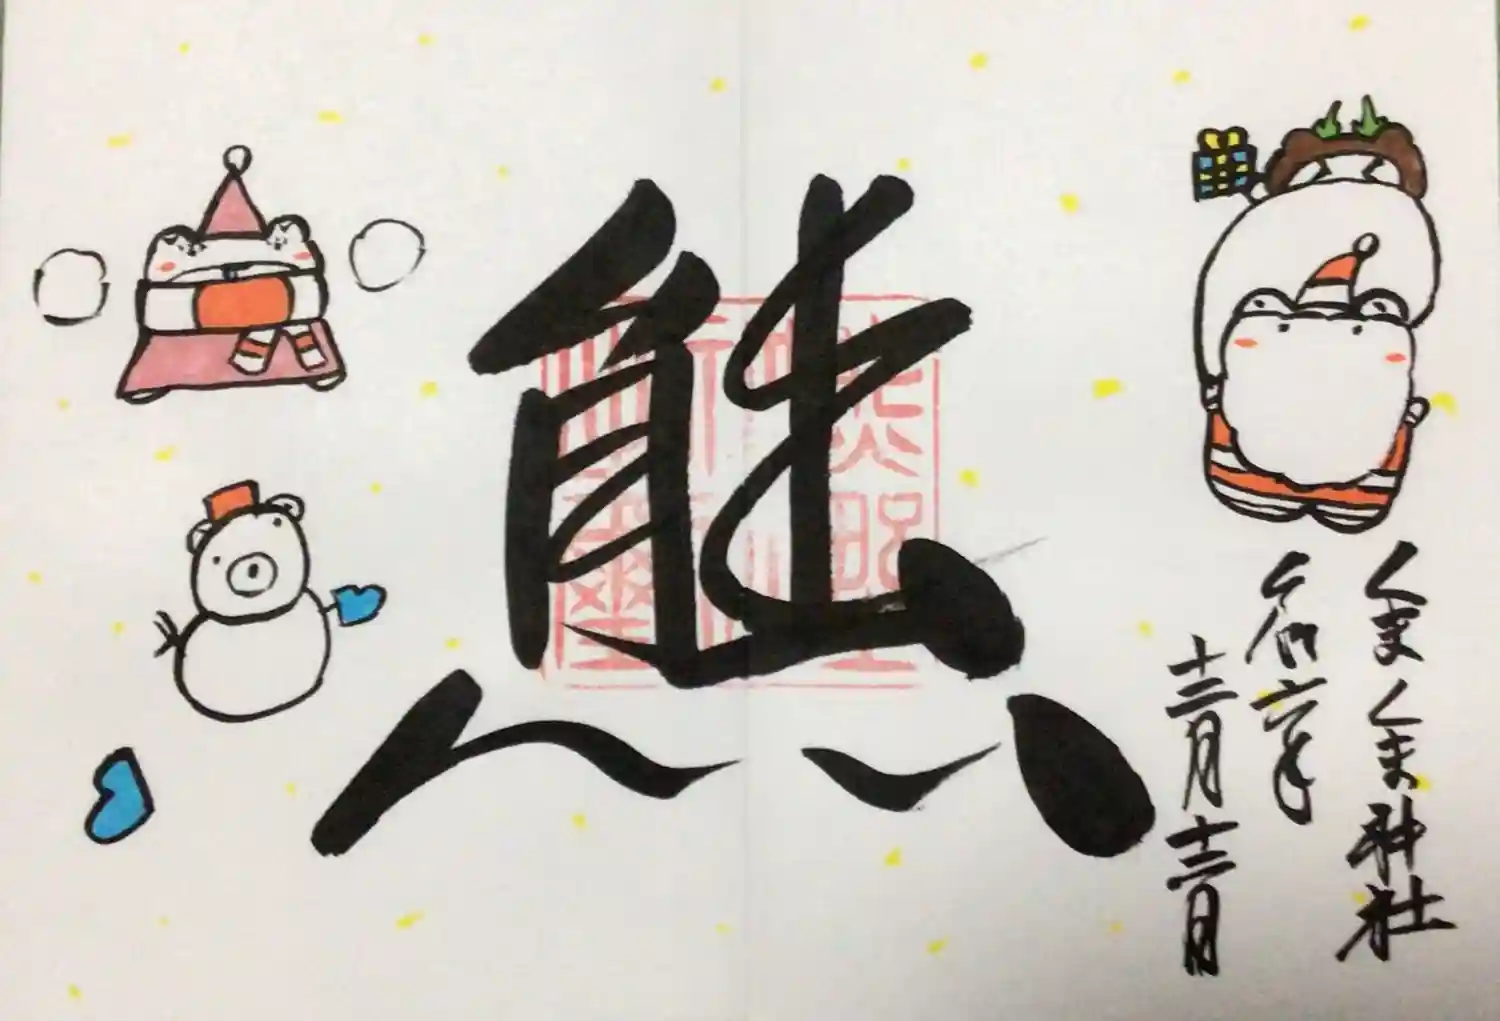 熊
くまくま神社
令和六年
十二月十二日